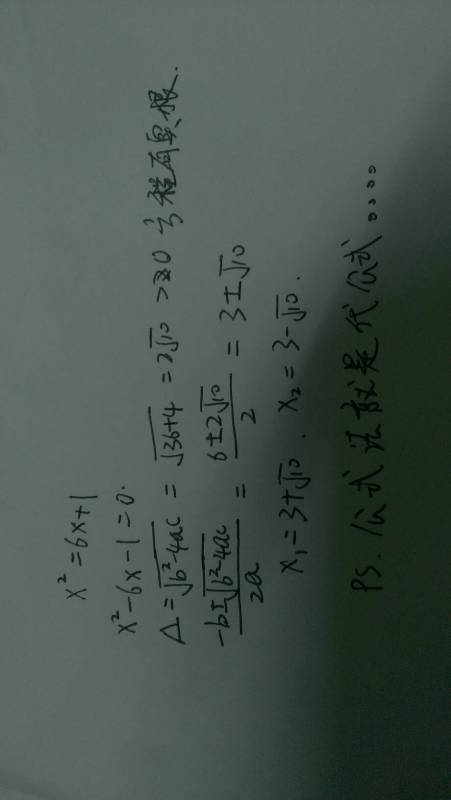 x² = 6x+1
x²-6x-1=0.
Δ=√b²-4ac = √36+4 = 2√10 >0 方程有实根.
-b±√b²-4ac / 2a = 6±2√10 / 2 = 3±√10
x₁=3+√10. x₂=3-√10.
PS. 公式法就是代公式。。。。